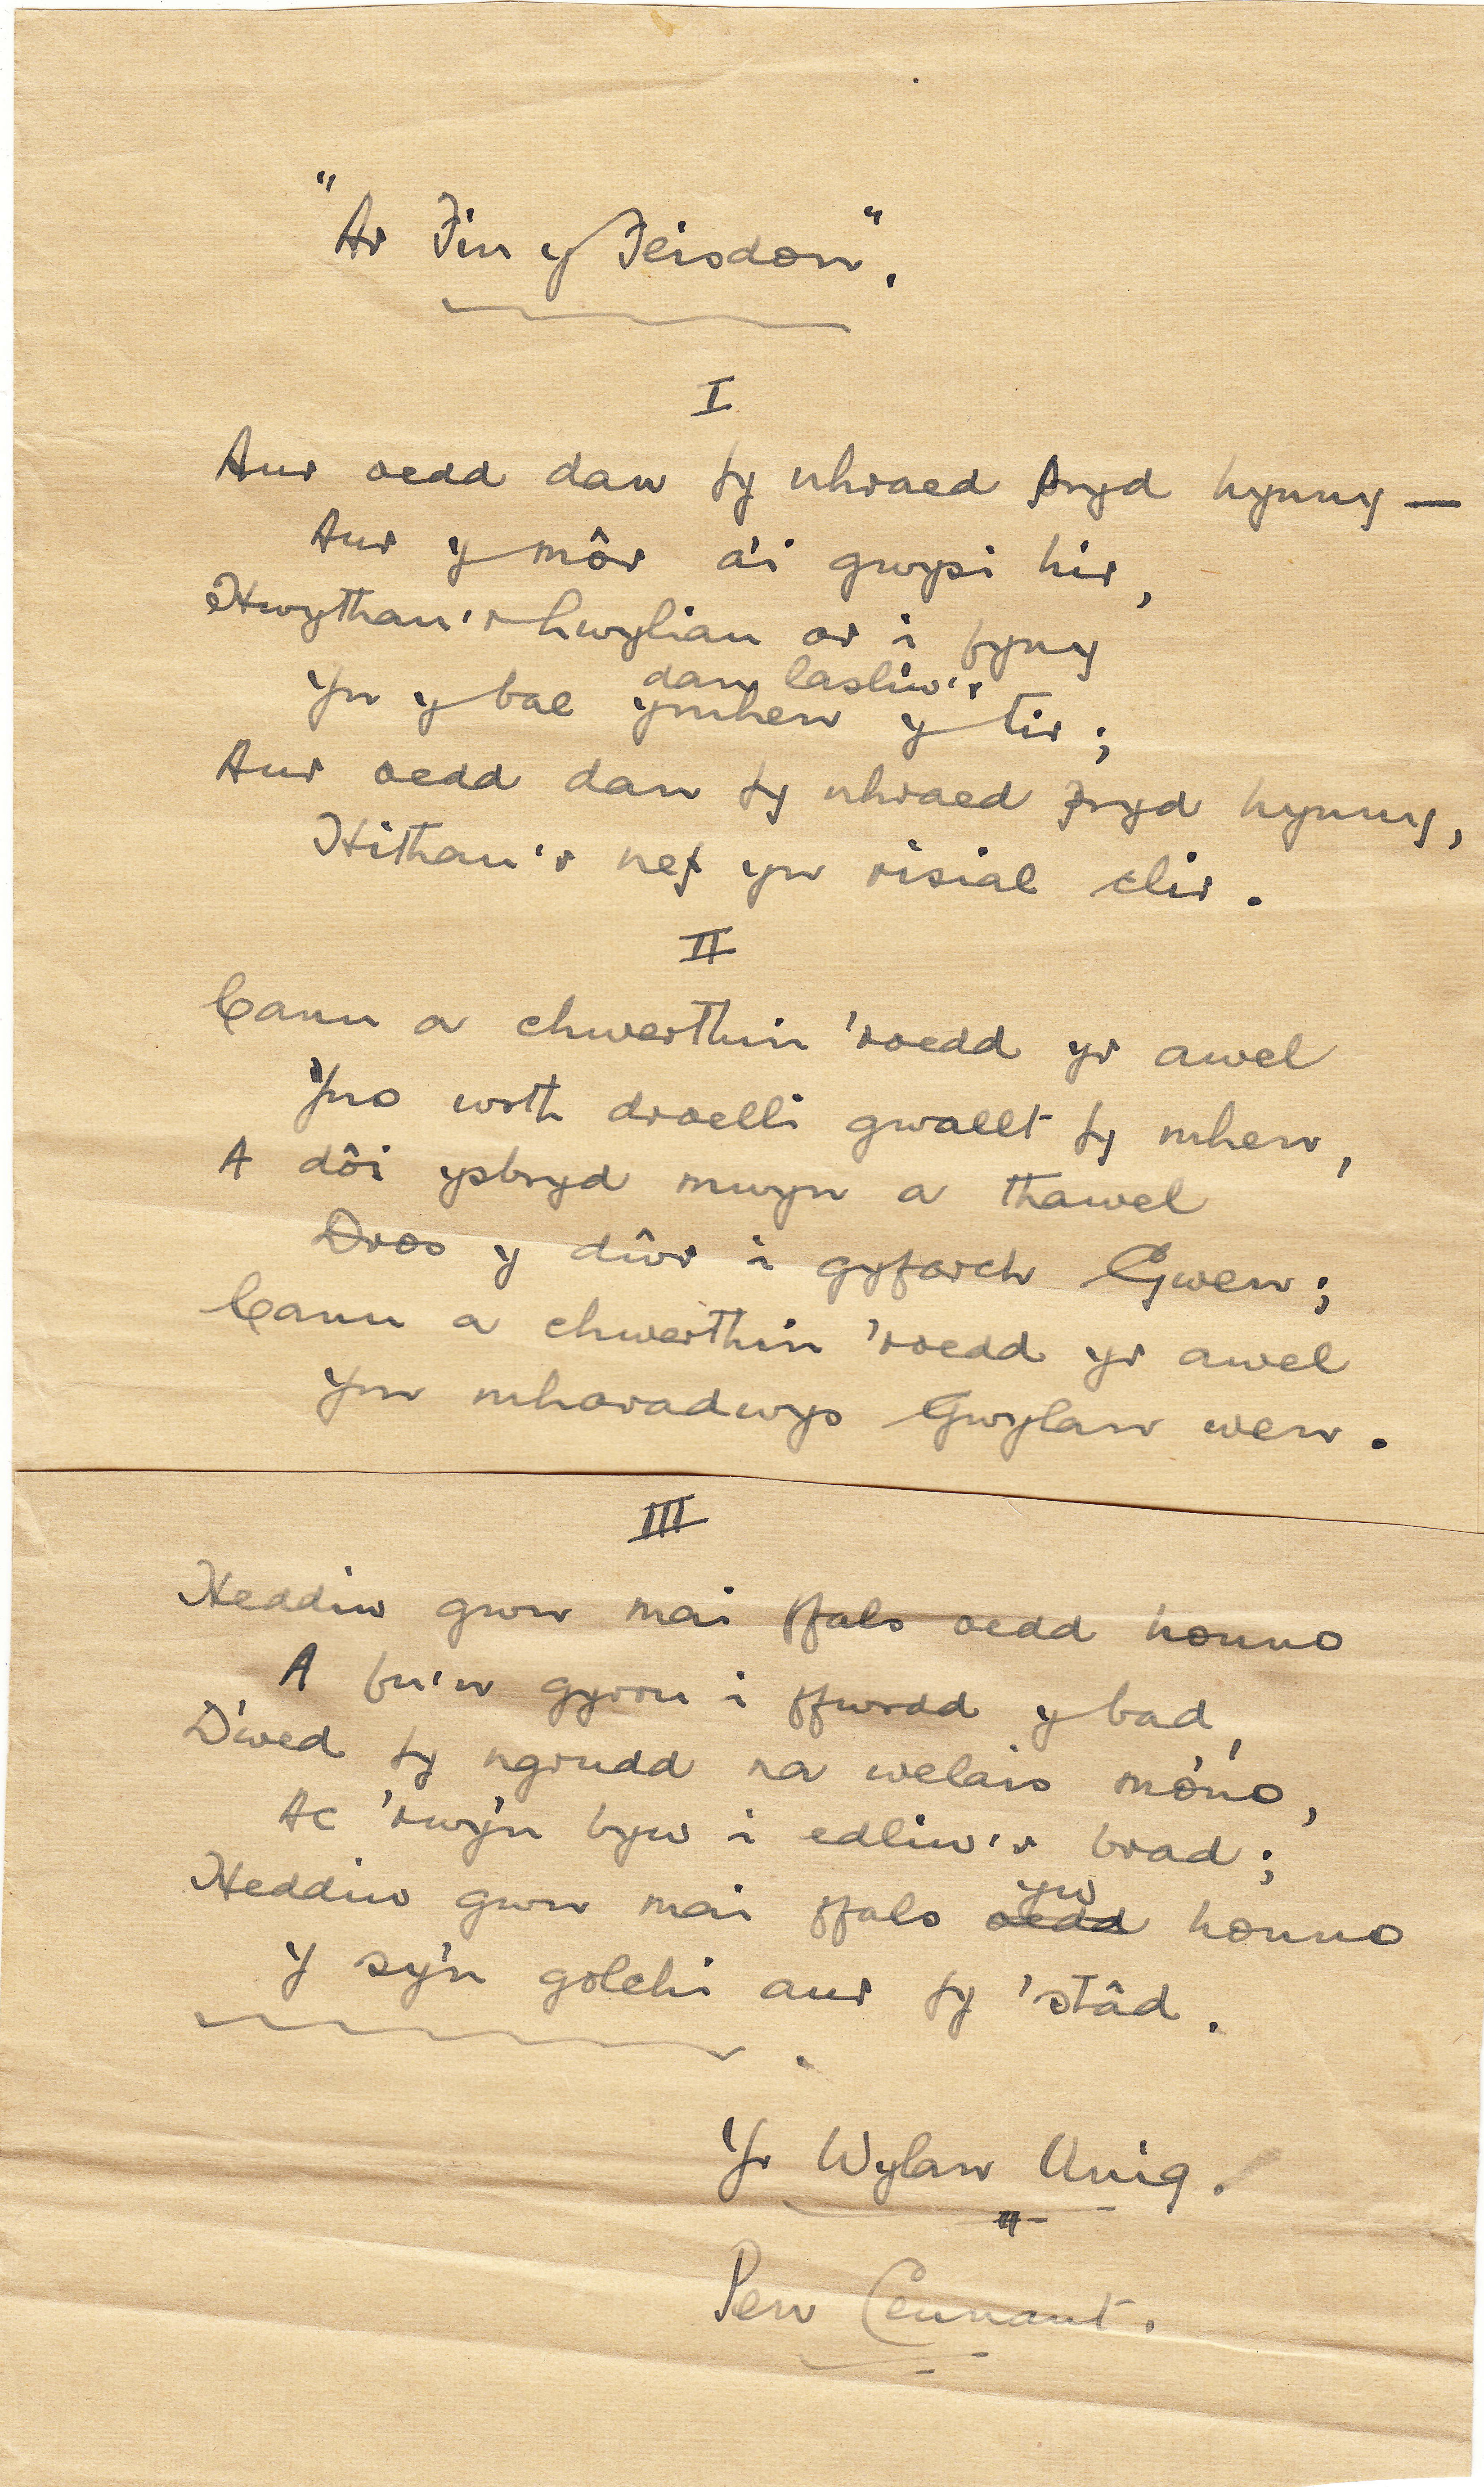 "Ar Fin y Feisdon".
I
Aur oedd dan fy nhraed pryd hynny —
Aur y môr a'i gwypi hir,
Hwythau'r hwyliau ar i fyny
dan lasliw'r
Yn y bae ymhen y tir;
Aur oedd dan fy nhraed pryd hynny,
Hithau'r nef yn risial clir.
II
Canu a chwerthin 'roedd yr awel
Yno wrth droelli gwallt fy mhen,
A dôi ysbryd mwyn a thawel
Dros y dŵr i gyfarch Gwen;
Canu a chwerthin 'roedd yr awel
Ym mharadwys Gwylan wen.
III
Heddiw gwn mai ffals oedd honno
A fu'n gyrru i ffwrdd y bad,
D'wed fy ngrudd na welais mo'no,
Ac 'rwy'n byw i edliw'r brad;
yw
Heddiw gwn mai ffals oedd honno
Y sy'n golchi aur fy 'stâd.
Yr Wylan Unig.
Pen Ceunant.